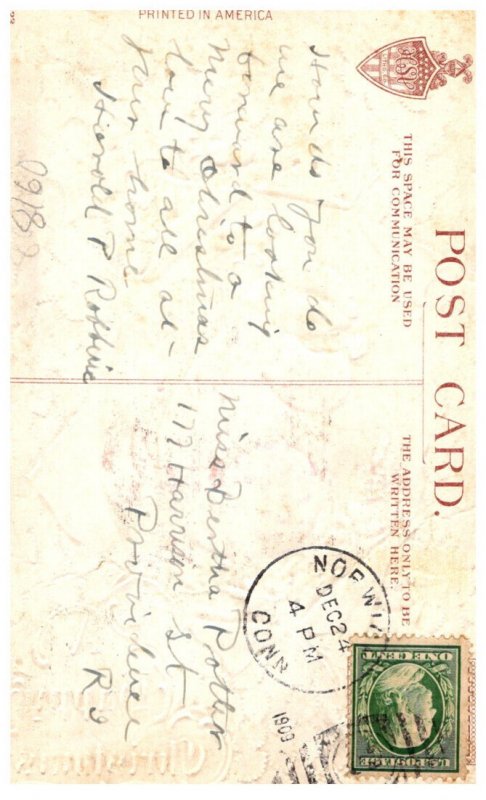 PRINTED IN AMERICA
POST CARD.
THIS SPACE MAY BE USED
FOR COMMUNICATION
THE ADDRESS ONLY TO BE
WRITTEN HERE.
How do you do
we are looking
forward to a
Merry Christmas
love to all at
your home
Harold P Robbins
Miss Bertha Potter
177 Harrison St
Providence
R I
NORWICH
DEC 24
4 PM
CONN
1909
U.S. POSTAGE
ONE CENT
Christmas